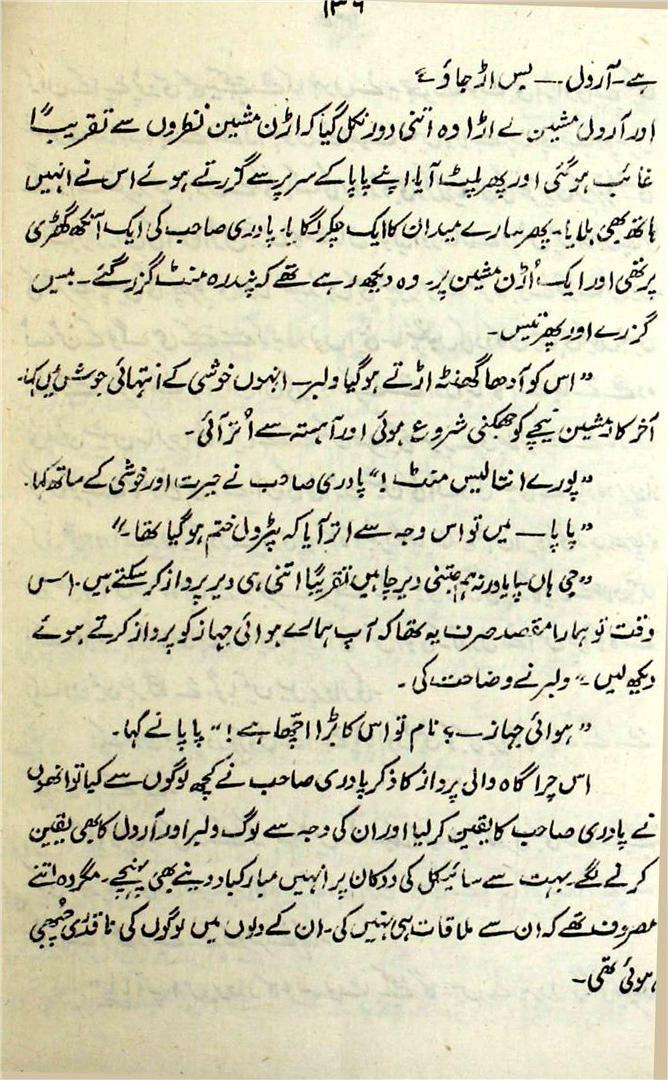 ۱۳۶
ہے۔ آرول — بس اڑ جاؤ"
اور آرول مشین لے اڑا وہ اتنی دور نکل گیا کہ اڑن مشین نظروں سے تقریباً
غائب ہو گئی اور پھر پلٹ آیا۔ اپنے پاپا کے سر پر سے گزرتے ہوئے اس نے انہیں
ہاتھ بھی ہلایا۔ پھر سارے میدان کا ایک چکر لگایا۔ پادری صاحب کی ایک آنکھ گھڑی
پر تھی اور ایک اُڑن مشین پر۔ وہ دیکھ رہے تھے کہ پندرہ منٹ گزر گئے۔ بیس
گزرے اور پھر تیس۔
"اس کو آدھا گھنٹہ اڑتے ہو گیا ولبر— انہوں خوشی کے انتہائی جوش میں کہا۔
آخر کار مشین نیچے کو جھکنی شروع ہوئی اور آہستہ سے اُتر آئی۔
"پورے انتالیس منٹ!" پادری صاحب نے حیرت اور خوشی کے ساتھ کہا۔
"پاپا— میں تو اس وجہ سے اتر آیا کہ پٹرول ختم ہو گیا تھا۔"
"جی ہاں پاپا ورنہ ہم جتنی دیر چاہیں تقریباً اتنی ہی دیر پرواز کر سکتے ہیں۔ اس
وقت تو ہمارا مقصد صرف یہ تھا کہ آپ ہمارے ہوائی جہاز کو پرواز کرتے ہوئے
دیکھ لیں۔" ولبر نے وضاحت کی۔
"ہوائی جہاز—؟ نام تو اس کا بڑا اچھا ہے!" پاپا نے کہا۔
اس چراگاہ والی پرواز کا ذکر پادری صاحب نے کچھ لوگوں سے کیا تو انھوں
نے پادری صاحب کا یقین کر لیا اور ان کی وجہ سے لوگ ولبر اور آرول کا بھی یقین
کرنے لگے۔ بہت سے سائیکل کی دوکان پر انہیں مبارکباد دینے بھی پہنچے۔ مگر وہ اتنے
مصروف تھے کہ ان سے ملاقات ہی نہیں کی۔ ان کے دلوں میں لوگوں کی ناقدری چُھپی
ہوئی تھی۔